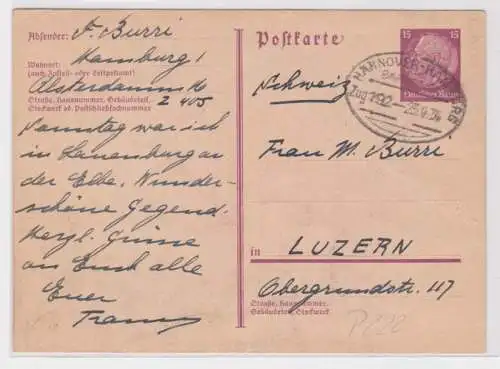 Absender: F. Burri
Wohnort: Hamburg 1
(auch Zustell- oder Leitpostamt)
Alsterdamm 16
Z 405
Straße, Hausnummer, Gebäudeteil,
Stockwerk od. Postschließfachnummer
Sonntag war ich
in Lauenburg an
der Elbe. Wunder-
schöne Gegend.
Herzl. Grüsse
an Euch alle
Euer
Franz
Postkarte
15 15
Deutsches Reich
HANNOVER
Zug 192
Schweiz
Frau M. Burri
in LUZERN
Obergrundstr. 117
Straße, Hausnummer,
Gebäudeteil, Stockwerk